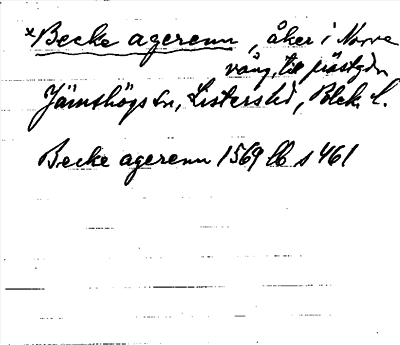 ×Becke agerenn, åker i Norre
vång, till prästgdn
Jämshögs sn, Listers hd, Blek. l.
Becke agerenn 1569 lb s 461